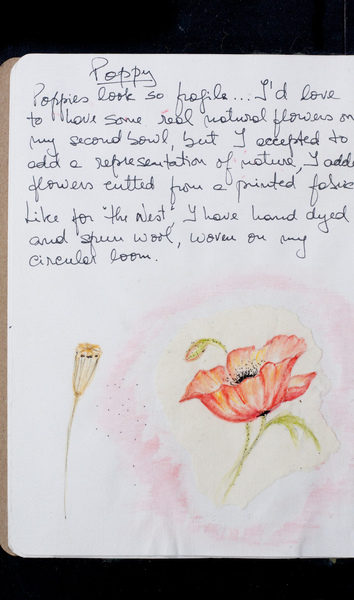 Poppy
Poppies look so fragile... I'd love
to have some real natural flowers on
my second bowl, but I accepted to
add a representation of nature, I adde
flowers cutted from a printed fabric
Like for "the Nest", I have hand dyed
and spun wool, woven on my
circular loom.